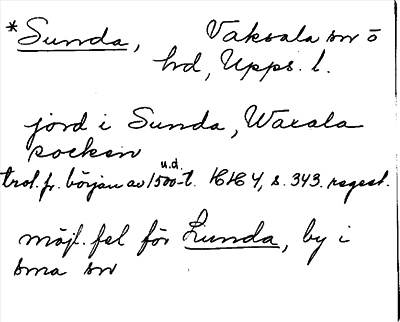 *Sunda, Vaksala sn o
hd, Upps. l.
jord i Sunda, Waxala
socken
u.d.
trol. fr. början av 1500-t. HH 4, s. 343. regest.
möjl. fel för Lunda, by i
sma sn